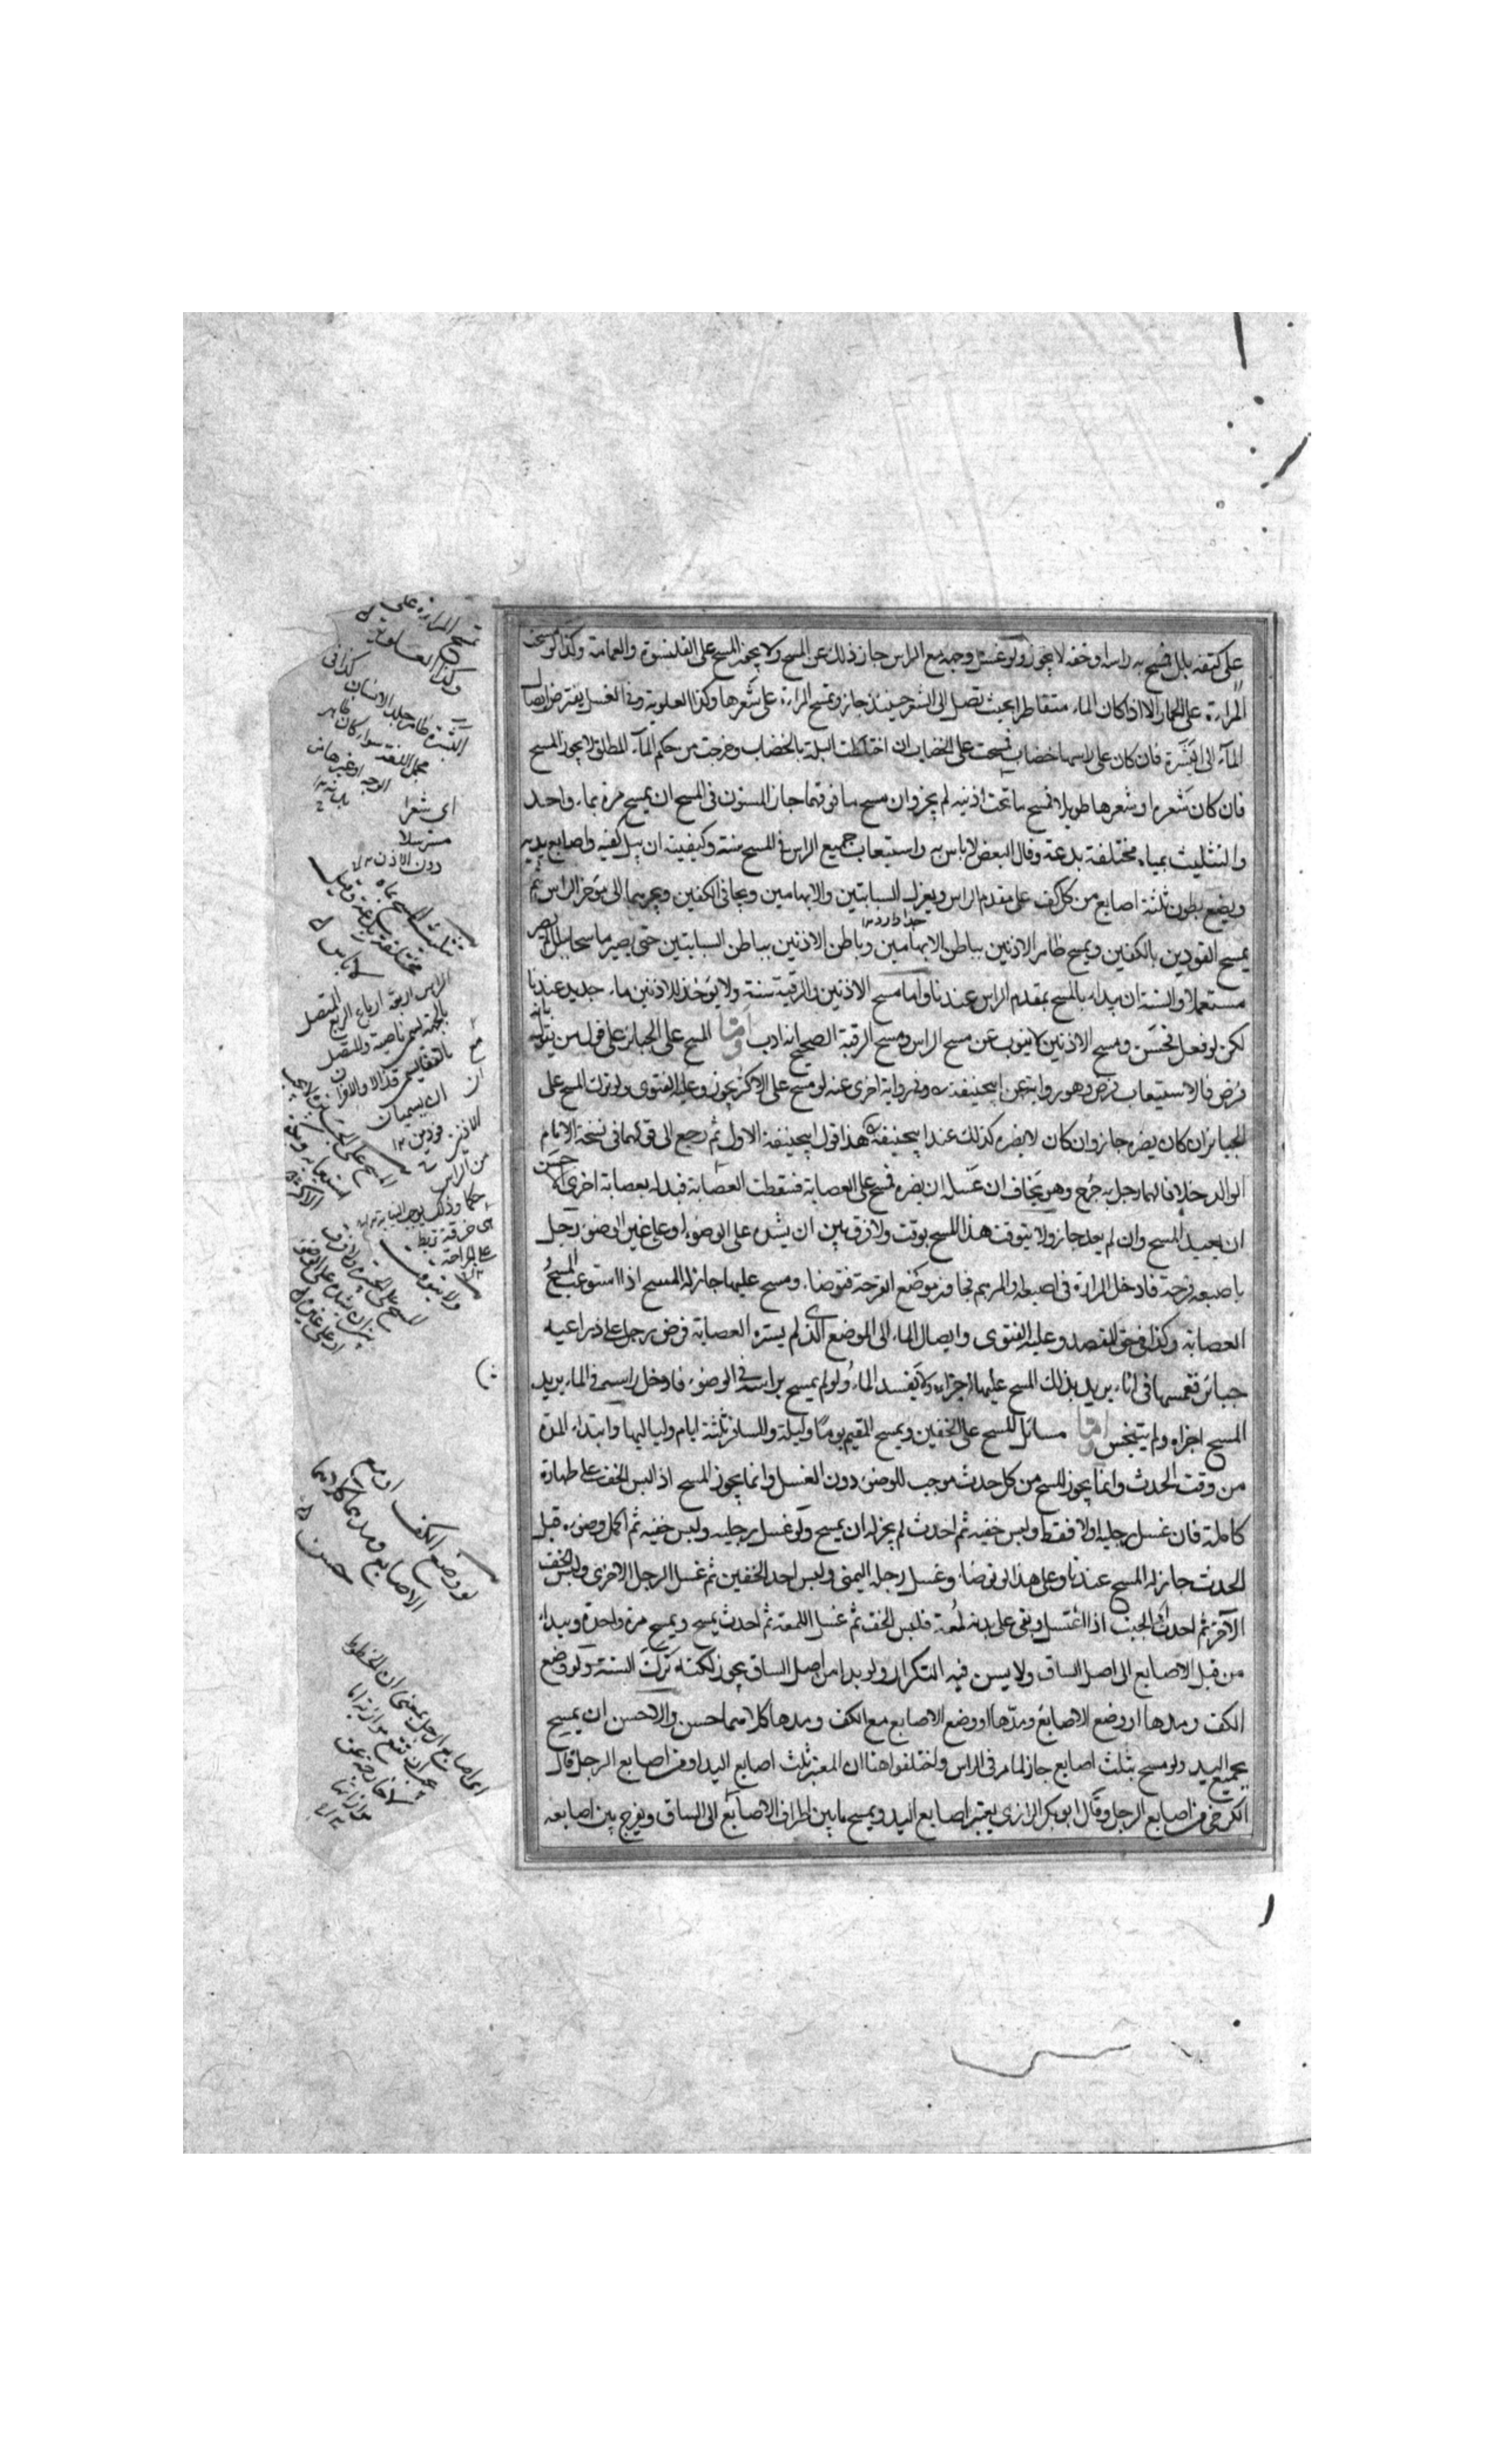 على كتفه بلل فمسح به راسه او خفه لا يجوز ولو غسل وجهه مع الراس جاز ذلك عن المسح ولا يجوز المسح على القلنسوة والعمامة وكذا لو مسحت
المراءة على الخمار الا اذا كان الماء متقاطرا بحيث تصل الى الشعر حينئذ جاز وتمسح المراءة على شعرها وكذا العلوية وفى الغسل يفترض ايصال
المآء الى البشرة فان كان على راسها خضاب فمسحت على الخضاب ان اختلطت البلة بالخضاب وخرجت من حكم المآء المطلق لا يجوز المسح
فان كان شعره او شعرها طويلا فمسح ما تحت اذنيه لم يجز وان مسح ما فوقهما جاز المسنون فى المسح ان يمسح مرة بماء واحد
والتثليث بمياه مختلفة بدعة وقال البعض لا باس به واستيعاب جميع الراس فى المسح سنة وكيفيته ان يبل كفيه واصابع يديه
ويضع بطون ثلثة اصابع من كل كف على مقدم الراس ويعزل السبابتين والابهامين ويجافى الكفين ويجرهما الى مؤخر الراس ثم
يمسح الفودين بالكفين ويمسح ظاهر الاذنين بباطن الابهامين وباطن الاذنين بباطن السبابتين حتى يصير ماسحا ببلل لم يصر
مستعملا والسنة ان يبداء بالمسح بمقدم الراس عندنا واما مسح الاذنين والرقبة سنة ولا يؤخذ للاذنين ماء جديد عندنا
لكن لو فعل فحسن ومسح الاذنين لا ينوب عن مسح الراس ومسح الرقبة الصحيح انه ادب واما المسح على الجبائر على قول من يقول بانه
فرض فالاستيعاب فرض وهو رواية عن ابيحنيفة وفى رواية اخرى عنه لو مسح على الاكثر يجوز وعليه الفتوى ولو ترك المسح على
الجبائر ان كان يضره جاز وان كان لا يضره كذلك عند ابيحنيفة هذا قول ابيحنيفة الاول ثم رجع الى قولهما فى نسخة الامام
الوالد خلافا لهما رجل به جرح وهو يخاف ان غسله ان يضره فمسح على العصابة فسقطت العصابة فبدله بعصابة اخرى حسن
ان يعيد المسح وان لم يعد جاز ولا يتوقت هذا المسح بوقت ولا فرق بين ان يشده على الوضوء او على غير الوضوء رجل
باصبعه قرحة فادخل المرارة فى اصبعه والمرهم فجاوز موضع القرحة فتوضاء ومسح عليها جاز له المسح اذا استوعب المسح
العصابة وكذا فى حق المفتصد وعليه الفتوى وايصال الماء الى الموضع الذى لم يستره العصابة فرض رجل على ذراعيه
جبائر فغمسها فى اناء يريد بذلك المسح عليها اجزاه ولا يفسد الماء ولو لم يمسح براسه فى الوضوء فادخل راسه فى الماء يريد
المسح اجزاه ولم يتنجس واما مسائل المسح على الخفين ويمسح المقيم يوما وليلة والمسافر ثلثة ايام ولياليها وابتداء المدة
من وقت الحدث وانما يجوز المسح من كل حدث موجب للوضوء دون الغسل وانما يجوز المسح اذا لبس الخف على طهارة
كاملة فان غسل رجليه اولا فقط ولبس خفيه ثم احدث لم يجز له ان يمسح ولو غسل رجليه ولبس خفيه ثم اكمل وضوءه قبل
الحدث جاز له المسح عندنا وعلى هذا لو توضاء وغسل رجله اليمنى ولبس احد الخفين ثم غسل الرجل الاخرى ولبس الخف
الآخر ثم احدث الجنب اذا اغتسل وبقى على بدنه لمعة فلبس الخف ثم غسل اللمعة ثم احدث يمسح ويمسح مرة واحدة ويبداء
من قبل الاصابع الى اصل الساق ولا يسن فيه التكرار ولو بدا من اصل الساق يجوز لكنه ترك السنة ولو وضع
الكف ومدها او وضع الاصابع ومدها او وضع الاصابع مع الكف ومدها كلاهما حسن والاحسن ان يمسح
بجميع اليد ولو مسح بثلث اصابع جاز لما مر فى الراس واختلفوا هنا ان المعتبر ثلث اصابع اليد او من اصابع الرجل قال
الكرخى من اصابع الرجل وقال ابو بكر الرازى يعتبر اصابع اليد ويمسح ما بين اطراف الاصابع الى الساق ويفرج بين اصابعه
تمسح المراءة على
وكذا العلوية
البشرة ظاهر جلد الانسان كذا فى
مجمل اللغة سواء كان ظاهر
الوجه او غيرها من
اى شعرا
مسترسلا
دون الاذن
تثليث المسح بماء
مختلفة بدعة وقيل
لا باس
الراس اربعة ارباع الربع المتصل
بالجبهة يسمى ناصية والمتصل
بالقفا يسمى قذالا والاخران
يسميان
فودين
الاذنين
من الراس
اى خرقة تربط
على الجراحة
لو وضع الكف او مع
الاصابع ومدهما كلاهما
حسن